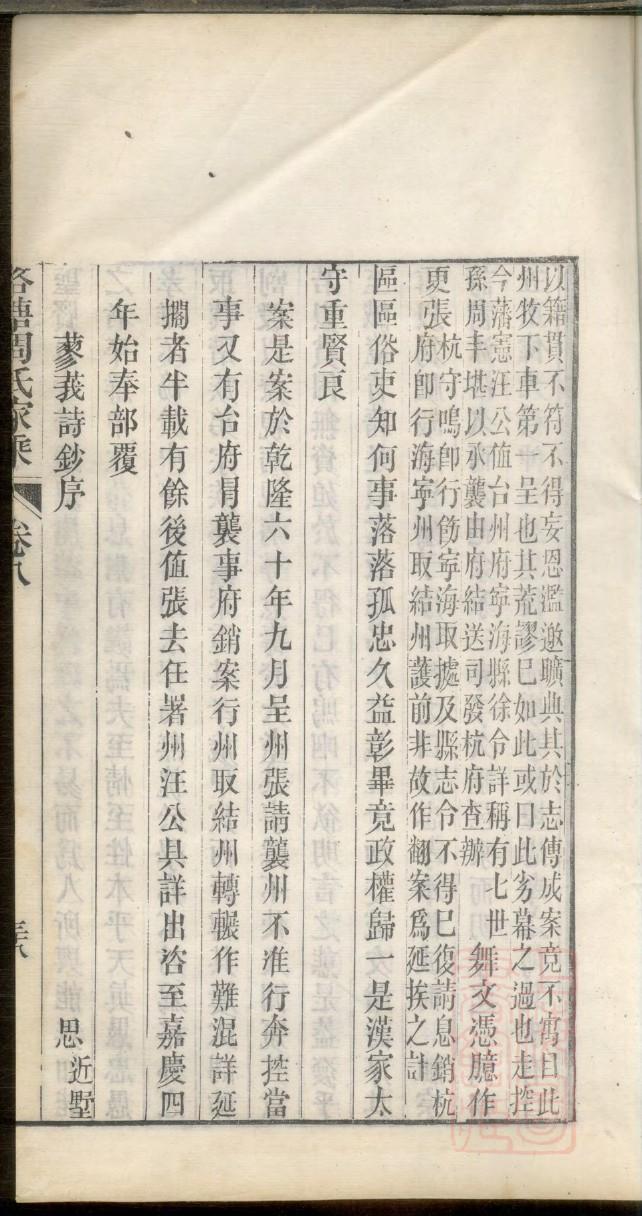 以籍貫不符不得妄恩濫邀曠典其於志傳成案竟不寓目此
州牧下車第一呈也其荒謬巳如此或曰此劣幕之過也走控
今藩憲汪公值台州府寧海縣徐令詳稱有七世
孫周丰堪以承襲由府結送司發杭府查辦　舞文憑臆作
更張　杭守鳴卽行飭寧海取據及縣志令不得巳復請息銷杭
府卽行海寧州取結州護前非故作翻案爲延挨之計
區區俗吏知何事落落孤忠久益彰畢竟政權歸一是漢家太
守重賢良
案是案於乾隆六十年九月呈州張請襲州不准行奔控當
事又有台府冐襲事府銷案行州取結州轉輾作難混詳延
擱者半載有餘後值張去任署州汪公具詳出咨至嘉慶四
年始奉部覆
蓼莪詩鈔序
思近墅
洛塘周氏家乘　卷八　三八